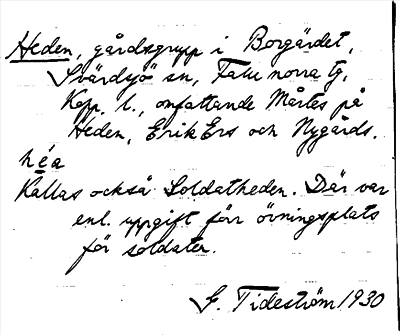 Heden, gårdsgrupp i Borgärdet,
Svärdsjö sn, Falu norra tg,
Kopp. l., omfattande Mårtes på
Heden, Erik Ers och Nygårds.
héa
Kallas också Soldatheden. Där var
enl. uppgift förr övningsplats
för soldater.
G. Tideström 1930